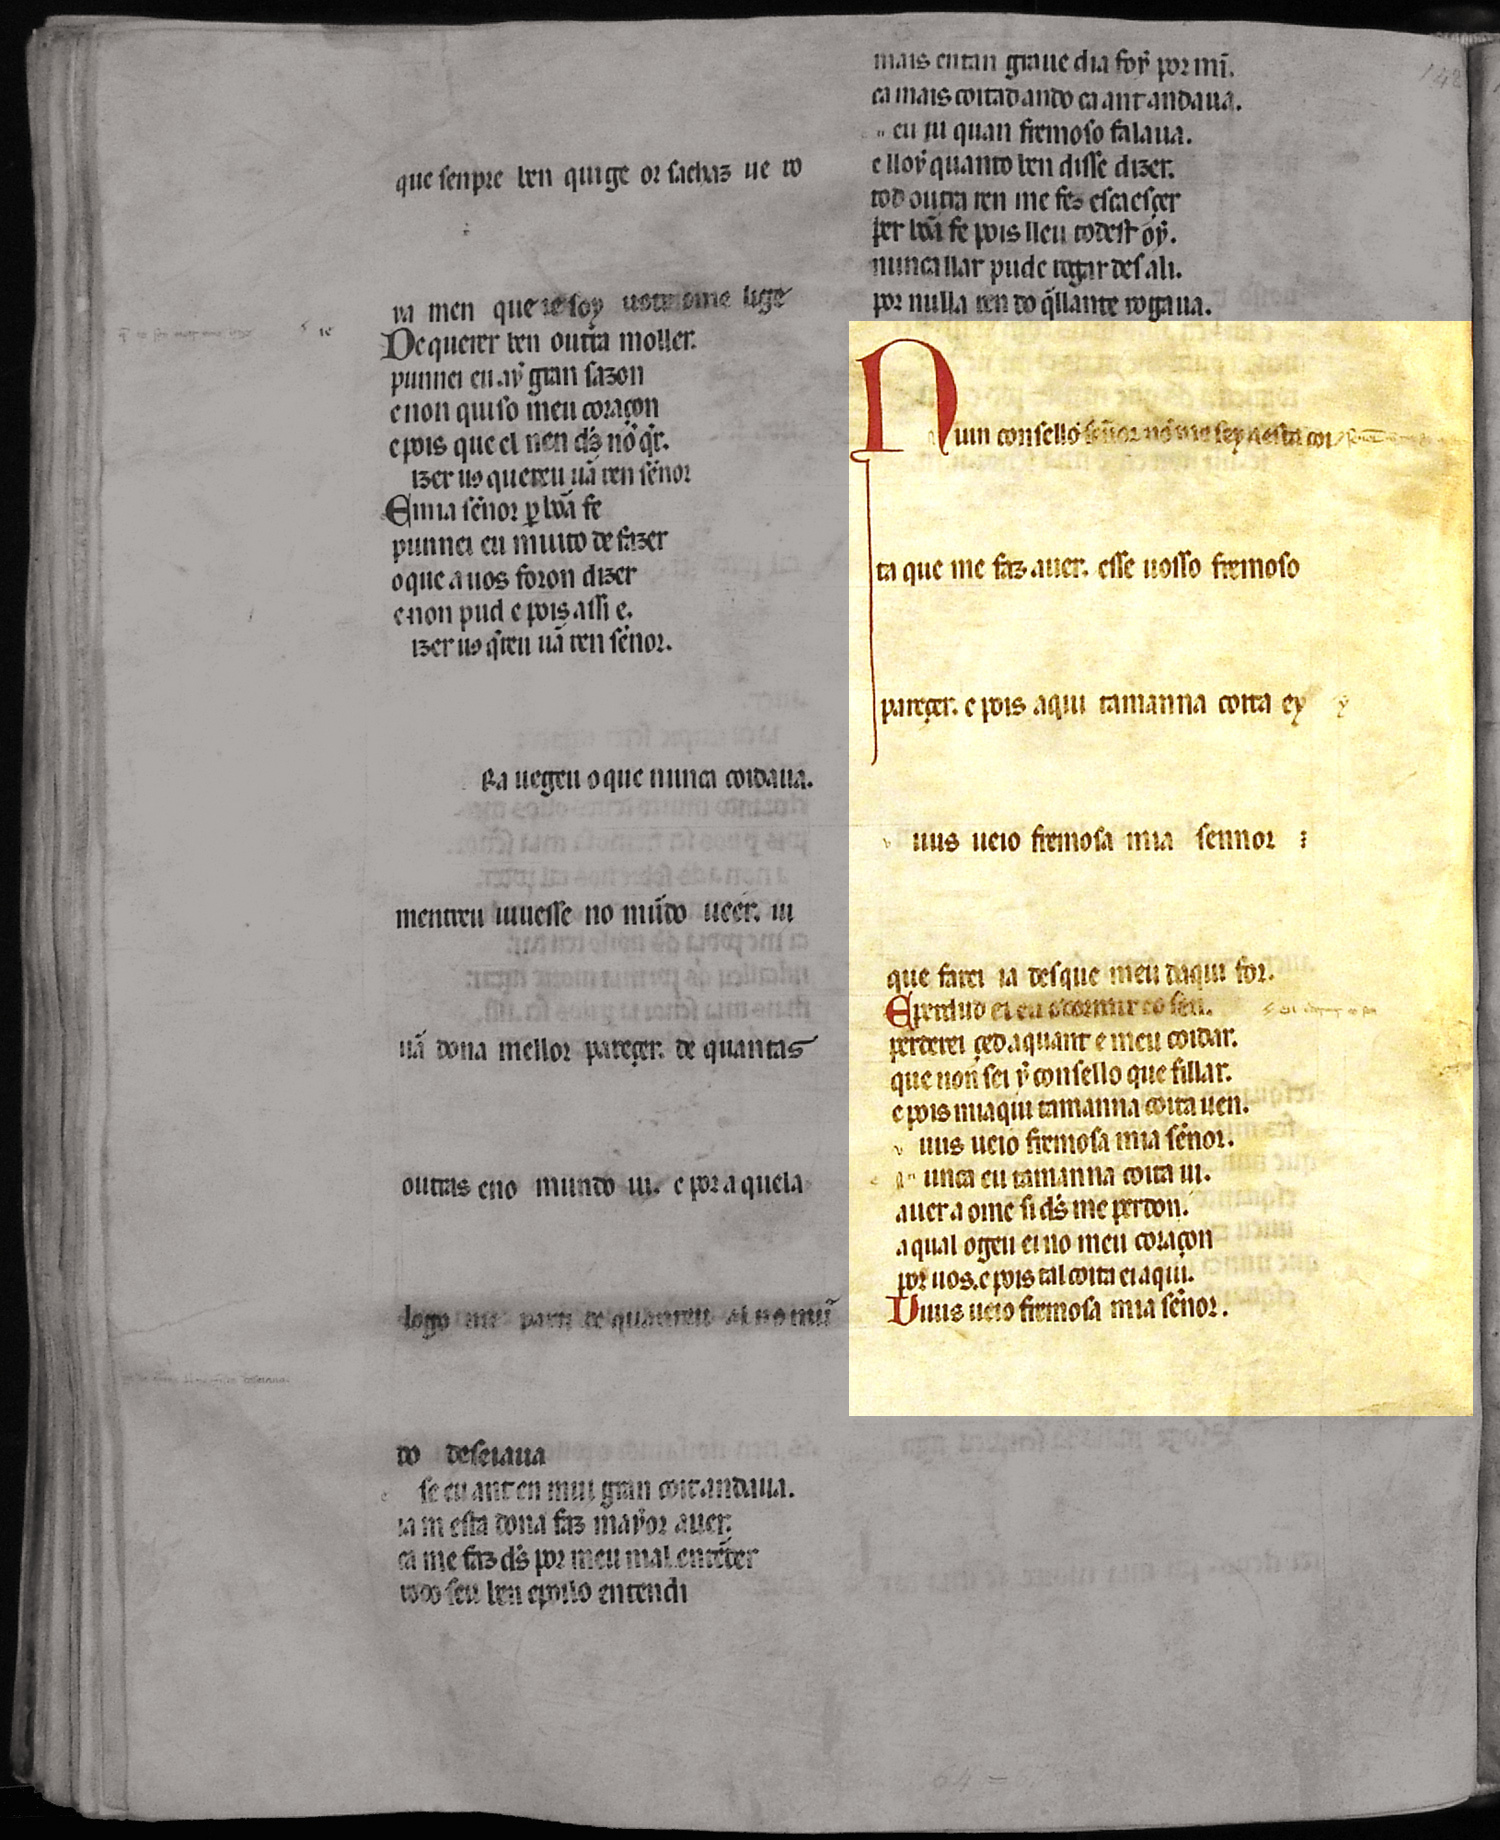 que senpre ben quige or sachaz ue to
ya men que ie soy uotr ome lige
De querer ben outra moller.
punnei eu. aẏ gran sazon
e non quiso meu coraçon
e pois que el nen d̄s nō q̄r.
izer uꝯ quereu uā ren sēnor
E mia sēnor ꝑ bōa fe
punnei eu muito de fazer
o que a uos foron dizer
e non pud e pois assi e.
izer uꝯ q̄reu uā ren sēnor.
Ra uegeu o que nunca coidaua.
mentreu uiuesse no mūdo ueer. ui
uā dona mellor pareçer. de quantas
outras eno mundo ui. e por aquela
logo me parti de quantreu al no mū
do deseiaua
se eu ant en mui gran coit andaua.
ia m esta dona faz maẏor auer.
ca me faz d̄s por meu mal. entēder
todo seu ben e poilo entendi
mais en tan graue dia foẏ por mī.
ca mais coitad ando ca ant andaua.
eu ui quan fremoso falaua.
e lloẏ quanto ben disse dizer.
tod outra ren me fez escaesçer
per bōa fe pois lleu todest oẏ.
nunca llar pude rogar des ali.
por nulla ren do q̄ llante rogaua.
Num consello sēnor nō me seẏ a esta coi
ta que me faz auer. esse uosso fremoso
pareçer. e pois aqui tamanna coita eẏ
uus ueio fremosa mia sennor :
que farei ia desque meu daqui for.
E perdud ei eu o dormir e o sen.
perderei çed aquant e meu coidar.
que non sei ẏ consello que fillar.
e pois miaqui tamanna coita uen.
uus ueio fremosa mia sēnor.
unca eu tamanna coita ui.
auer a ome si d̄s me perdon.
a qual ogeu ei no meu coraçon
por uos. e pois tal coita ei aqui.
Uuus ueio fremosa mia sēnor.